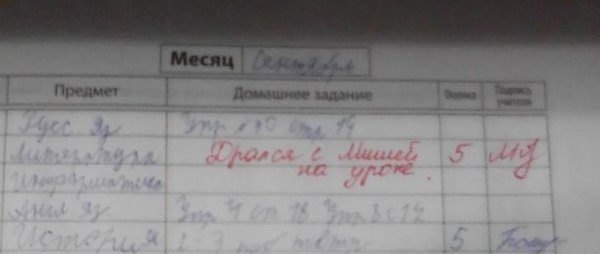 Месяц Сентябрь
Предмет Домашнее задание Оценка Подпись учителя
Русс яз Упр 90 стр 19
Литература Дрался с Мишей 5
на уроке.
Информатика
Англ яз Упр 4 ст 18 Упр 8 с 12
История 5